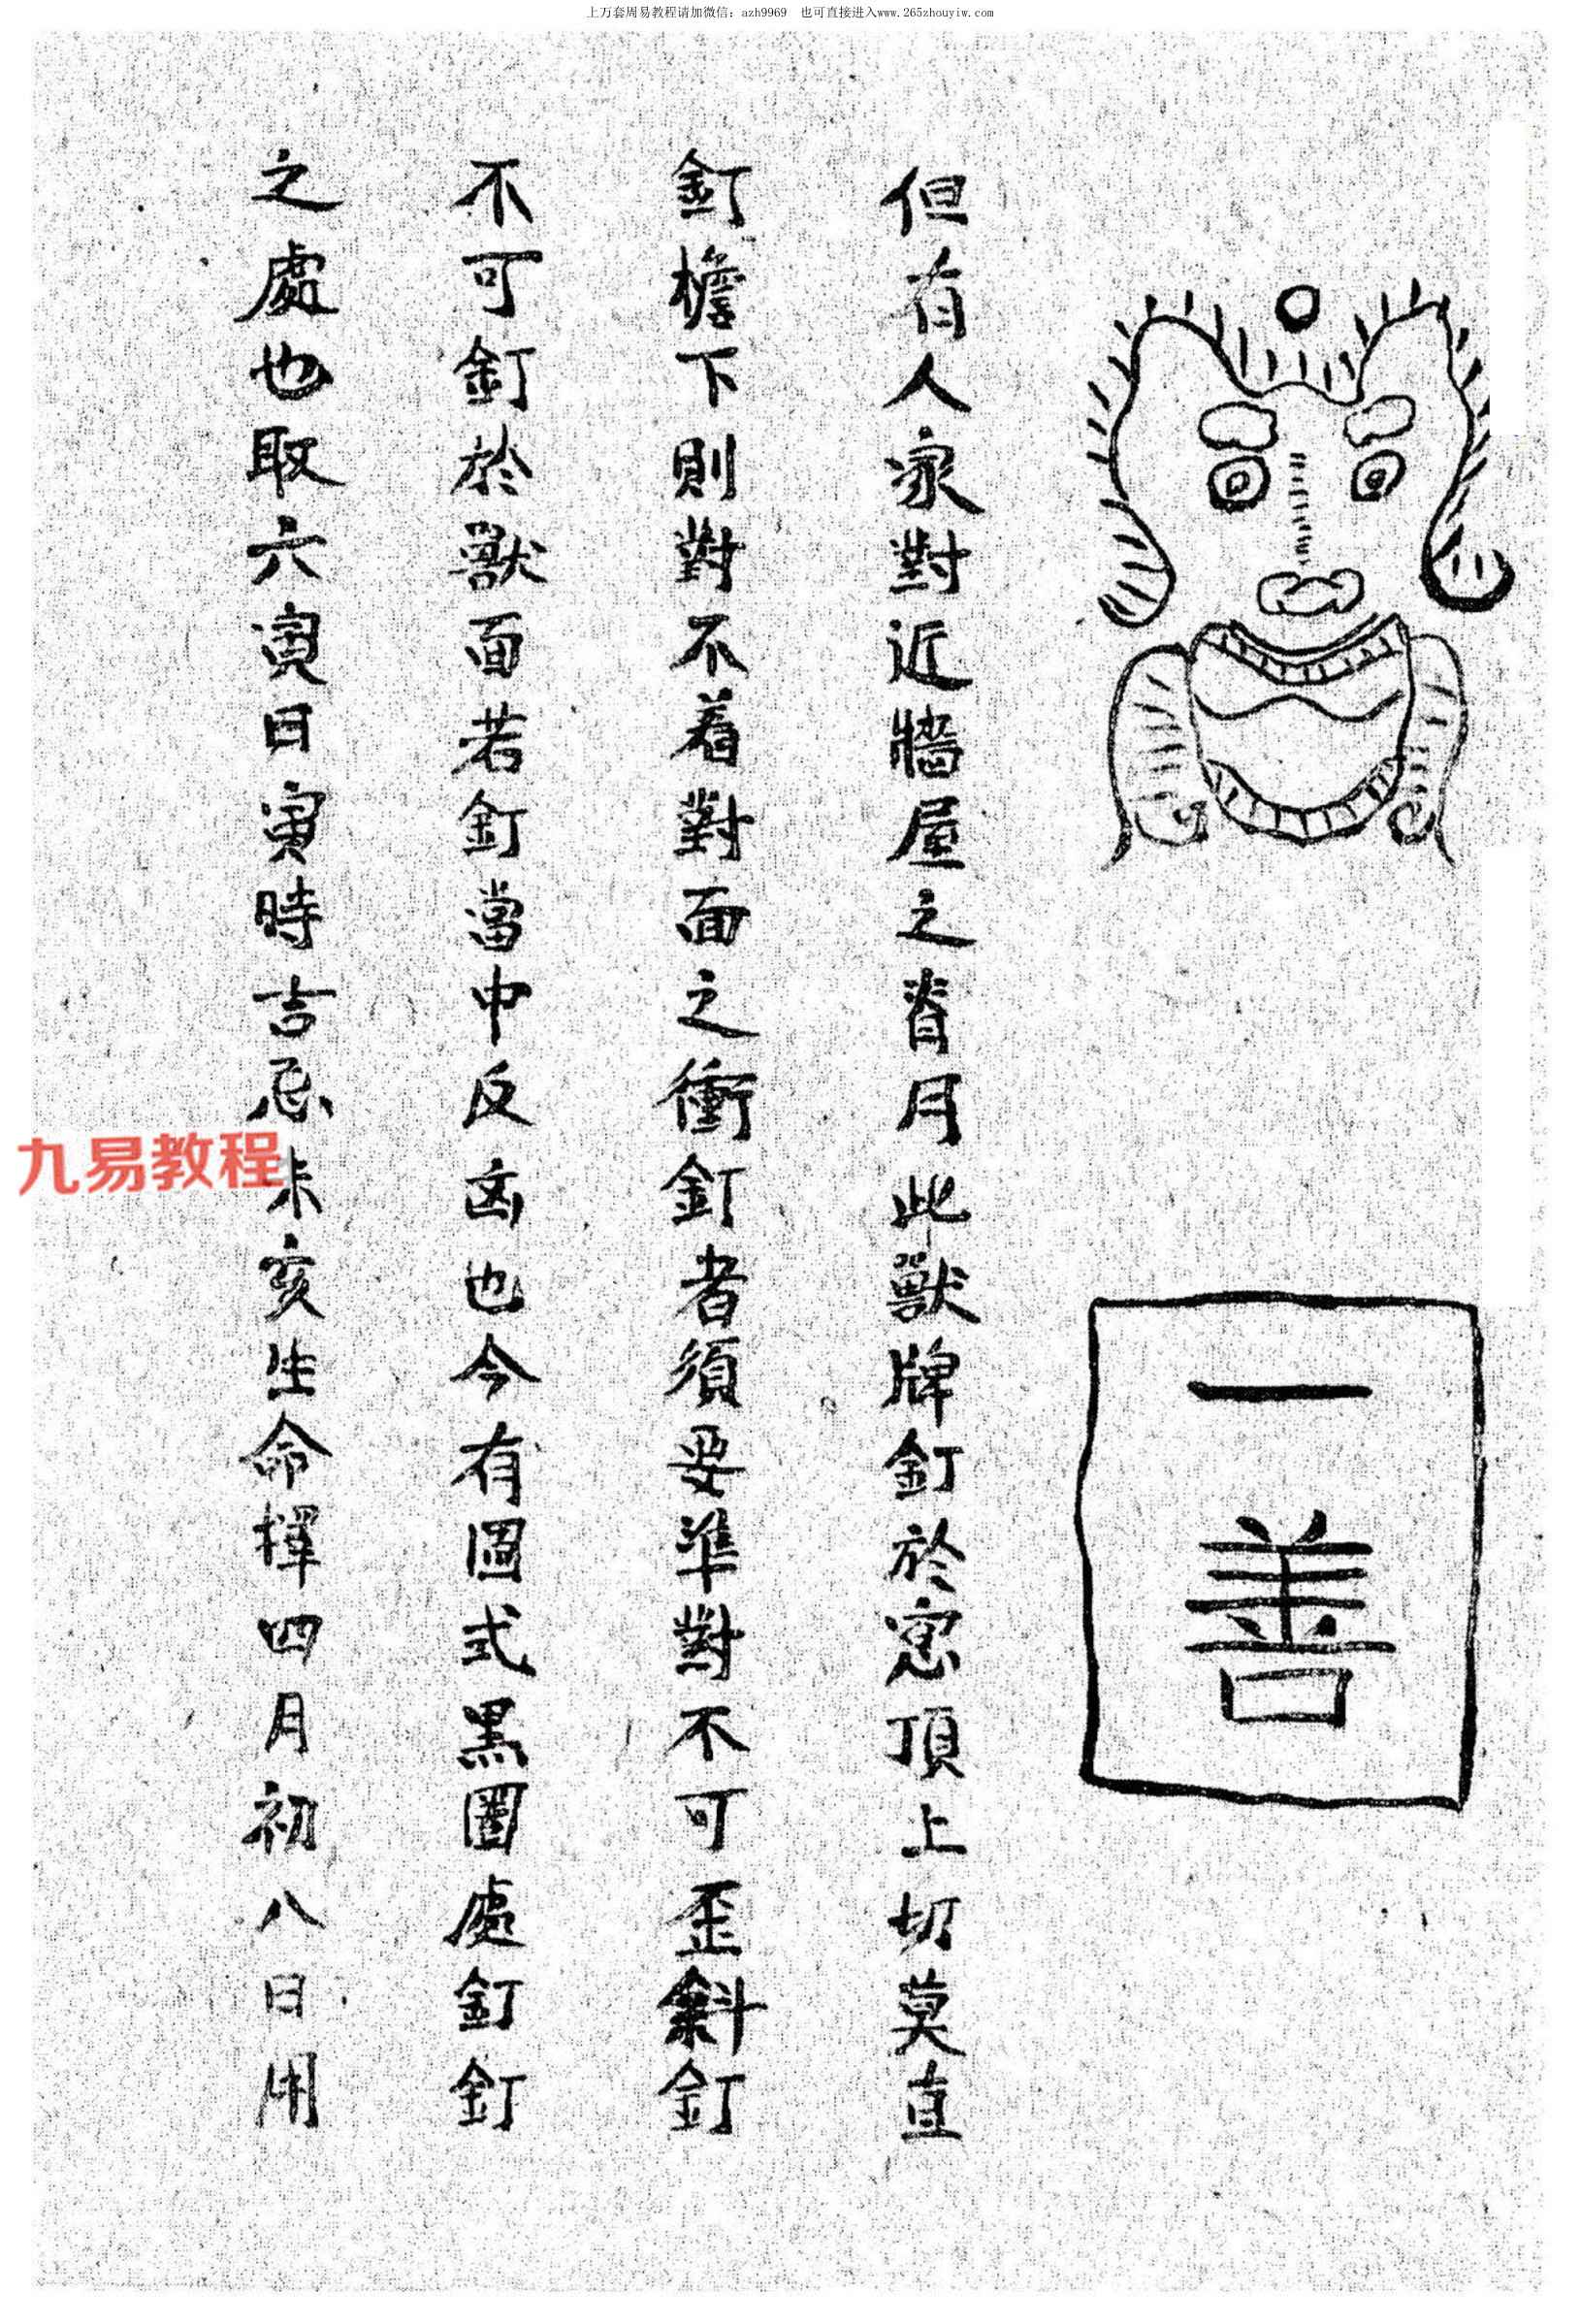 上万套周易教程请加微信：azh9969 也可直接进入www.265zhouyiw.com
一善
但有人家對近牆屋之脊用此獸牌釘於窓頂上切莫直
釘檐下則對不着對面之衝釘者須要準對不可歪斜釘
不可釘於獸面若釘當中反凶也今有圖式黑圈處釘釘
之處也取六寅日寅時吉忌未亥生命擇四月初八日用
九易教程